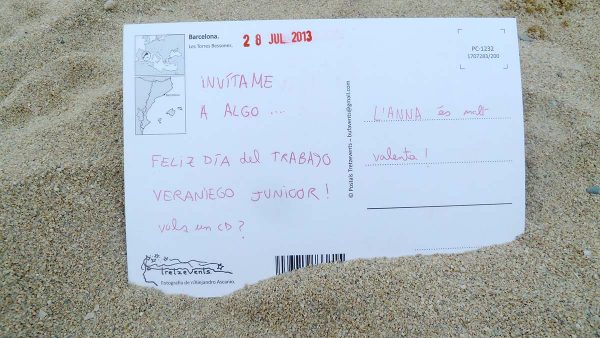 Barcelona.
Les Torres Bessones.
28 JUL 2013
PC-1232
1707283/200
INVÍTAME
A ALGO ...
FELIZ DÍA del TRABAJO
VERANIEGO JUNIOR!
vols un CD?
© Postals Tretzevents – bufavents@gmail.com
L'ANNA és molt
valenta!
tretzevents
Fotografia de n'Alejandro Ascanio.